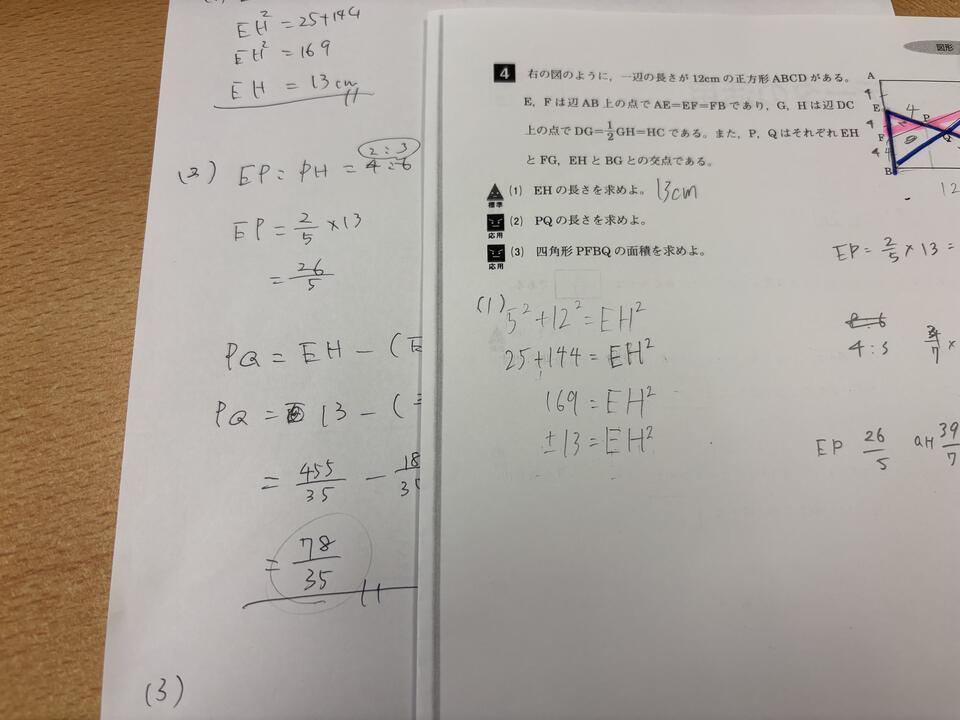 EH²=25+144
EH²=169
EH = 13cm
(2) EP:PH = 4:6
2:3
EP=2/5×13
=26/5
PQ=EH-(E
PQ = 13-(
=455/35 - 18
35
=78/35
(3)
図形
4 右の図のように,一辺の長さが12cmの正方形ABCDがある。
E,Fは辺AB上の点でAE=EF=FBであり,G,Hは辺DC
上の点でDG=1/2GH=HCである。また,P,QはそれぞれEH
とFG,EHとBGとの交点である。
標準 (1) EHの長さを求めよ。 13cm
応用 (2) PQの長さを求めよ。
応用 (3) 四角形PFBQの面積を求めよ。
A
4
E
4
F
4
B
4
P
Q
12
(1) 5²+12²=EH²
25+144=EH²
169=EH²
±13=EH²
EP=2/5×13=
4:3
/7×
EP 26/5 QH 39/7